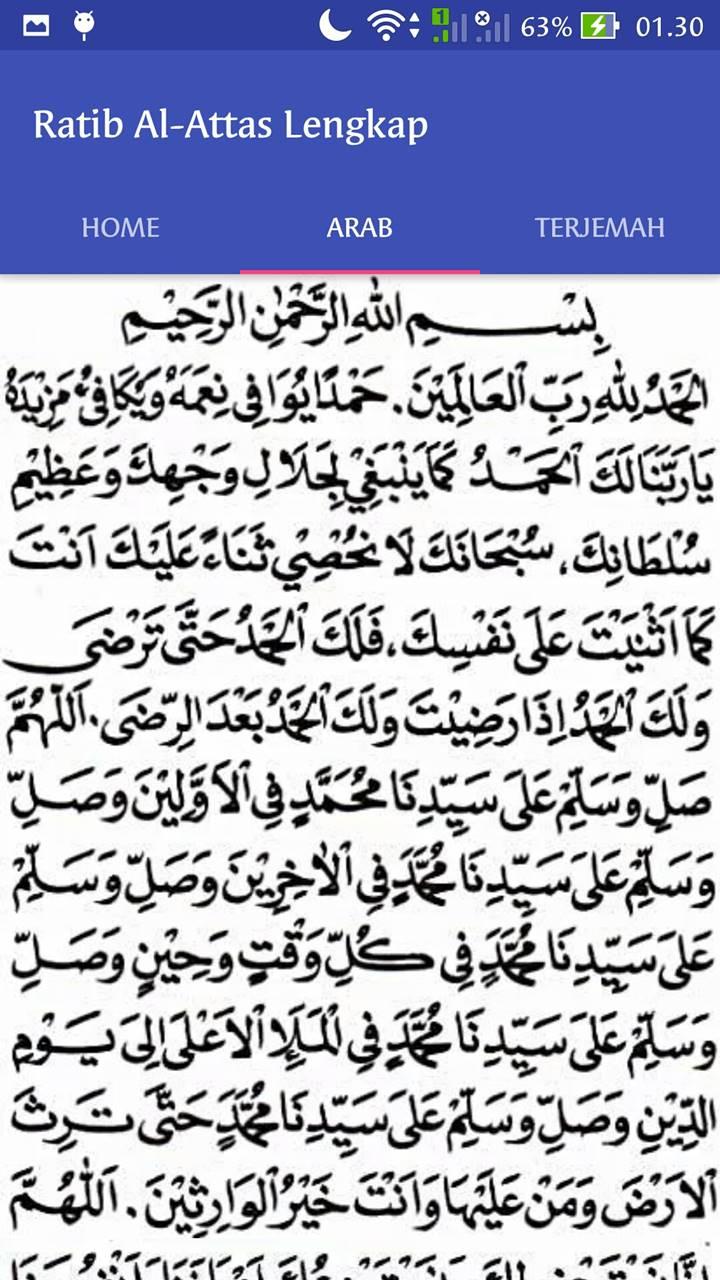 63% 01.30
Ratib Al-Attas Lengkap
HOME ARAB TERJEMAH
بِسْــــمِ اللهِ الرَّحْمٰنِ الرَّحِيْمِ
اَلْحَمْدُ لِلّٰهِ رَبِّ الْعَالَمِيْنَ. حَمْدًا يُوَافِي نِعَمَهُ وَيُكَافِئُ مَزِيْدَهُ
يَا رَبَّنَا لَكَ الْحَمْدُ كَمَا يَنْبَغِيْ لِجَلَالِ وَجْهِكَ وَعَظِيْمِ
سُلْطَانِكَ، سُبْحَانَكَ لَا نُحْصِيْ ثَنَاءً عَلَيْكَ اَنْتَ
كَمَا اَثْنَيْتَ عَلَى نَفْسِكَ، فَلَكَ الْحَمْدُ حَتَّى تَرْضَى
وَلَكَ الْحَمْدُ اِذَا رَضِيْتَ وَلَكَ الْحَمْدُ بَعْدَ الرِّضَى. اَللّٰهُمَّ
صَلِّ وَسَلِّمْ عَلَى سَيِّدِنَا مُحَمَّدٍ فِي الْاَوَّلِيْنَ وَصَلِّ
وَسَلِّمْ عَلَى سَيِّدِنَا مُحَمَّدٍ فِي الْاٰخِرِيْنَ وَصَلِّ وَسَلِّمْ
عَلَى سَيِّدِنَا مُحَمَّدٍ فِي كُلِّ وَقْتٍ وَحِيْنٍ وَصَلِّ
وَسَلِّمْ عَلَى سَيِّدِنَا مُحَمَّدٍ فِي الْمَلَإِ الْاَعْلَى اِلَى يَوْمِ
الدِّيْنِ وَصَلِّ وَسَلِّمْ عَلَى سَيِّدِنَا مُحَمَّدٍ حَتَّى تَرِثَ
الْاَرْضَ وَمَنْ عَلَيْهَا وَاَنْتَ خَيْرُ الْوَارِثِيْنَ. اَللّٰهُمَّ